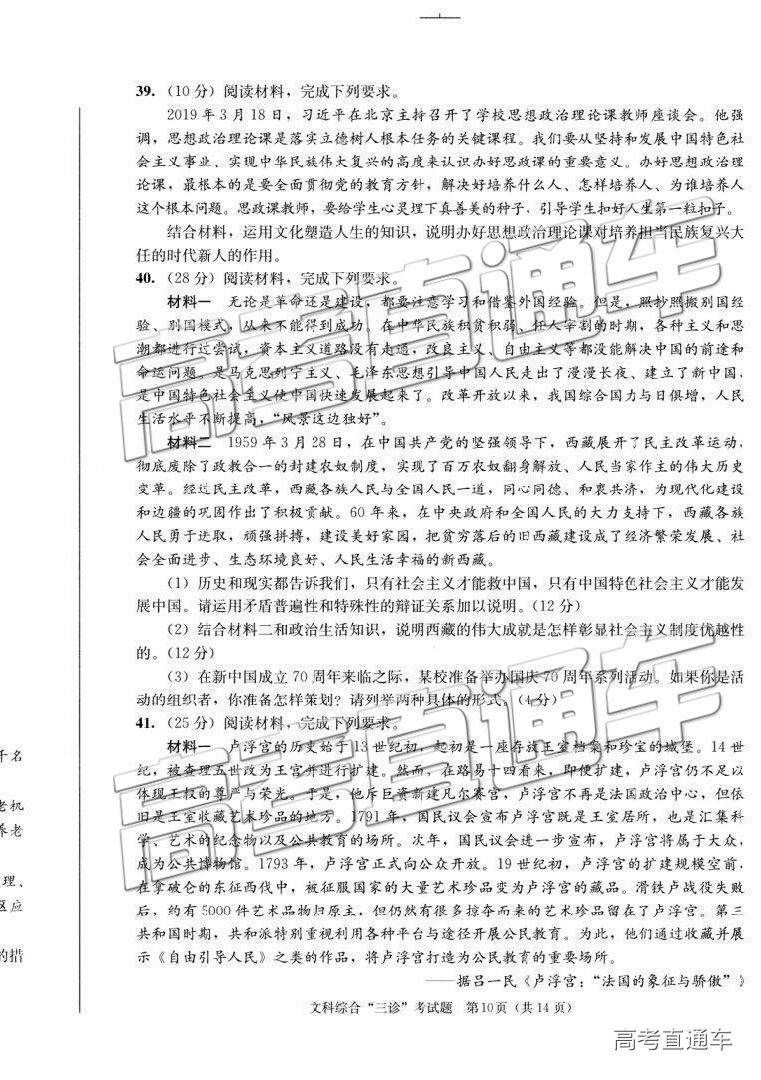 39. (10分) 阅读材料，完成下列要求。
2019年3月18日，习近平在北京主持召开了学校思想政治理论课教师座谈会。他强
调，思想政治理论课是落实立德树人根本任务的关键课程。我们要从坚持和发展中国特色社
会主义事业、实现中华民族伟大复兴的高度来认识办好思政课的重要意义。办好思想政治理
论课，最根本的是要全面贯彻党的教育方针，解决好培养什么人、怎样培养人、为谁培养人
这个根本问题。思政课教师，要给学生心灵埋下真善美的种子，引导学生扣好人生第一粒扣子。
结合材料，运用文化塑造人生的知识，说明办好思想政治理论课对培养担当民族复兴大
任的时代新人的作用。
40. (28分) 阅读材料，完成下列要求。
材料一 无论是革命还是建设，都要注意学习和借鉴外国经验。但是，照抄照搬别国经
验、别国模式，从来不能得到成功。在中华民族积贫积弱、任人宰割的时期，各种主义和思
潮都进行过尝试，资本主义道路没有走通，改良主义、自由主义等都没能解决中国的前途和
命运问题。是马克思列宁主义、毛泽东思想引导中国人民走出了漫漫长夜、建立了新中国，
是中国特色社会主义使中国快速发展起来了。改革开放以来，我国综合国力与日俱增，人民
生活水平不断提高，“风景这边独好”。
材料二 1959年3月28日，在中国共产党的坚强领导下，西藏展开了民主改革运动，
彻底废除了政教合一的封建农奴制度，实现了百万农奴翻身解放、人民当家作主的伟大历史
变革。经过民主改革，西藏各族人民与全国人民一道，同心同德、和衷共济，为现代化建设
和边疆的巩固作出了积极贡献。60年来，在中央政府和全国人民的大力支持下，西藏各族
人民勇于进取，顽强拼搏，建设美好家园，把贫穷落后的旧西藏建设成了经济繁荣发展、社
会全面进步、生态环境良好、人民生活幸福的新西藏。
(1) 历史和现实都告诉我们，只有社会主义才能救中国，只有中国特色社会主义才能发
展中国。请运用矛盾普遍性和特殊性的辩证关系加以说明。(12分)
(2) 结合材料二和政治生活知识，说明西藏的伟大成就是怎样彰显社会主义制度优越性
的。(12分)
(3) 在新中国成立70周年来临之际，某校准备举办国庆70周年系列活动。如果你是活
动的组织者，你准备怎样策划？请列举两种具体的形式。(4分)
41. (25分) 阅读材料，完成下列要求。
材料一 卢浮宫的历史始于13世纪初，起初是一座存放王室档案和珍宝的城堡。14世
纪，被查理五世改为王宫并进行扩建。然而，在路易十四看来，即便扩建，卢浮宫仍不足以
体现王权的尊严与荣光。于是，他斥巨资新建凡尔赛宫，卢浮宫不再是法国政治中心，但依
旧是王室收藏艺术珍品的地方。1791年，国民议会宣布卢浮宫既是王室居所，也是汇集科
学、艺术的纪念物以及公共教育的场所。次年，国民议会进一步宣布，卢浮宫将属于大众，
成为公共博物馆。1793年，卢浮宫正式向公众开放。19世纪初，卢浮宫的扩建规模空前，
在拿破仑的东征西伐中，被征服国家的大量艺术珍品变为卢浮宫的藏品。滑铁卢战役失败
后，约有5000件艺术品物归原主，但仍然有很多掠夺而来的艺术珍品留在了卢浮宫。第三
共和国时期，共和派特别重视利用各种平台与途径开展公民教育。为此，他们通过收藏并展
示《自由引导人民》之类的作品，将卢浮宫打造为公民教育的重要场所。
——据吕一民《卢浮宫：“法国的象征与骄傲”》
文科综合“三诊”考试题 第10页（共14页）
千名
老机
养老
理、
区应
的措
高考直通车
高考直通车
高考直通车